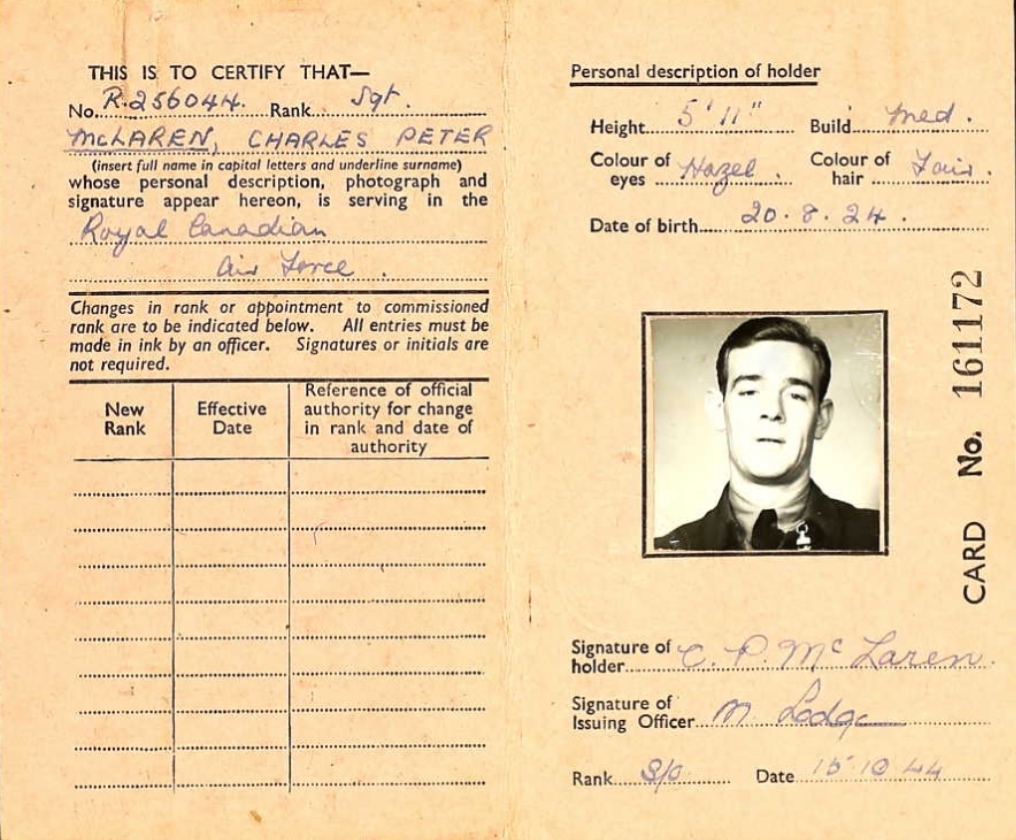 THIS IS TO CERTIFY THAT—
No. R.256044. Rank Sgt.
McLAREN, CHARLES PETER
(insert full name in capital letters and underline surname)
whose personal description, photograph and
signature appear hereon, is serving in the
Royal Canadian
Air Force.
Changes in rank or appointment to commissioned
rank are to be indicated below. All entries must be
made in ink by an officer. Signatures or initials are
not required.
New
Rank
Effective
Date
Reference of official
authority for change
in rank and date of
authority
Personal description of holder
Height 5'11" Build Med.
Colour of
eyes Hazel.
Colour of
hair Fair.
Date of birth 20.8.24.
CARD No. 161172
Signature of
holder C. P. McLaren.
Signature of
Issuing Officer M. Lodge
Rank S/O Date 15.10.44